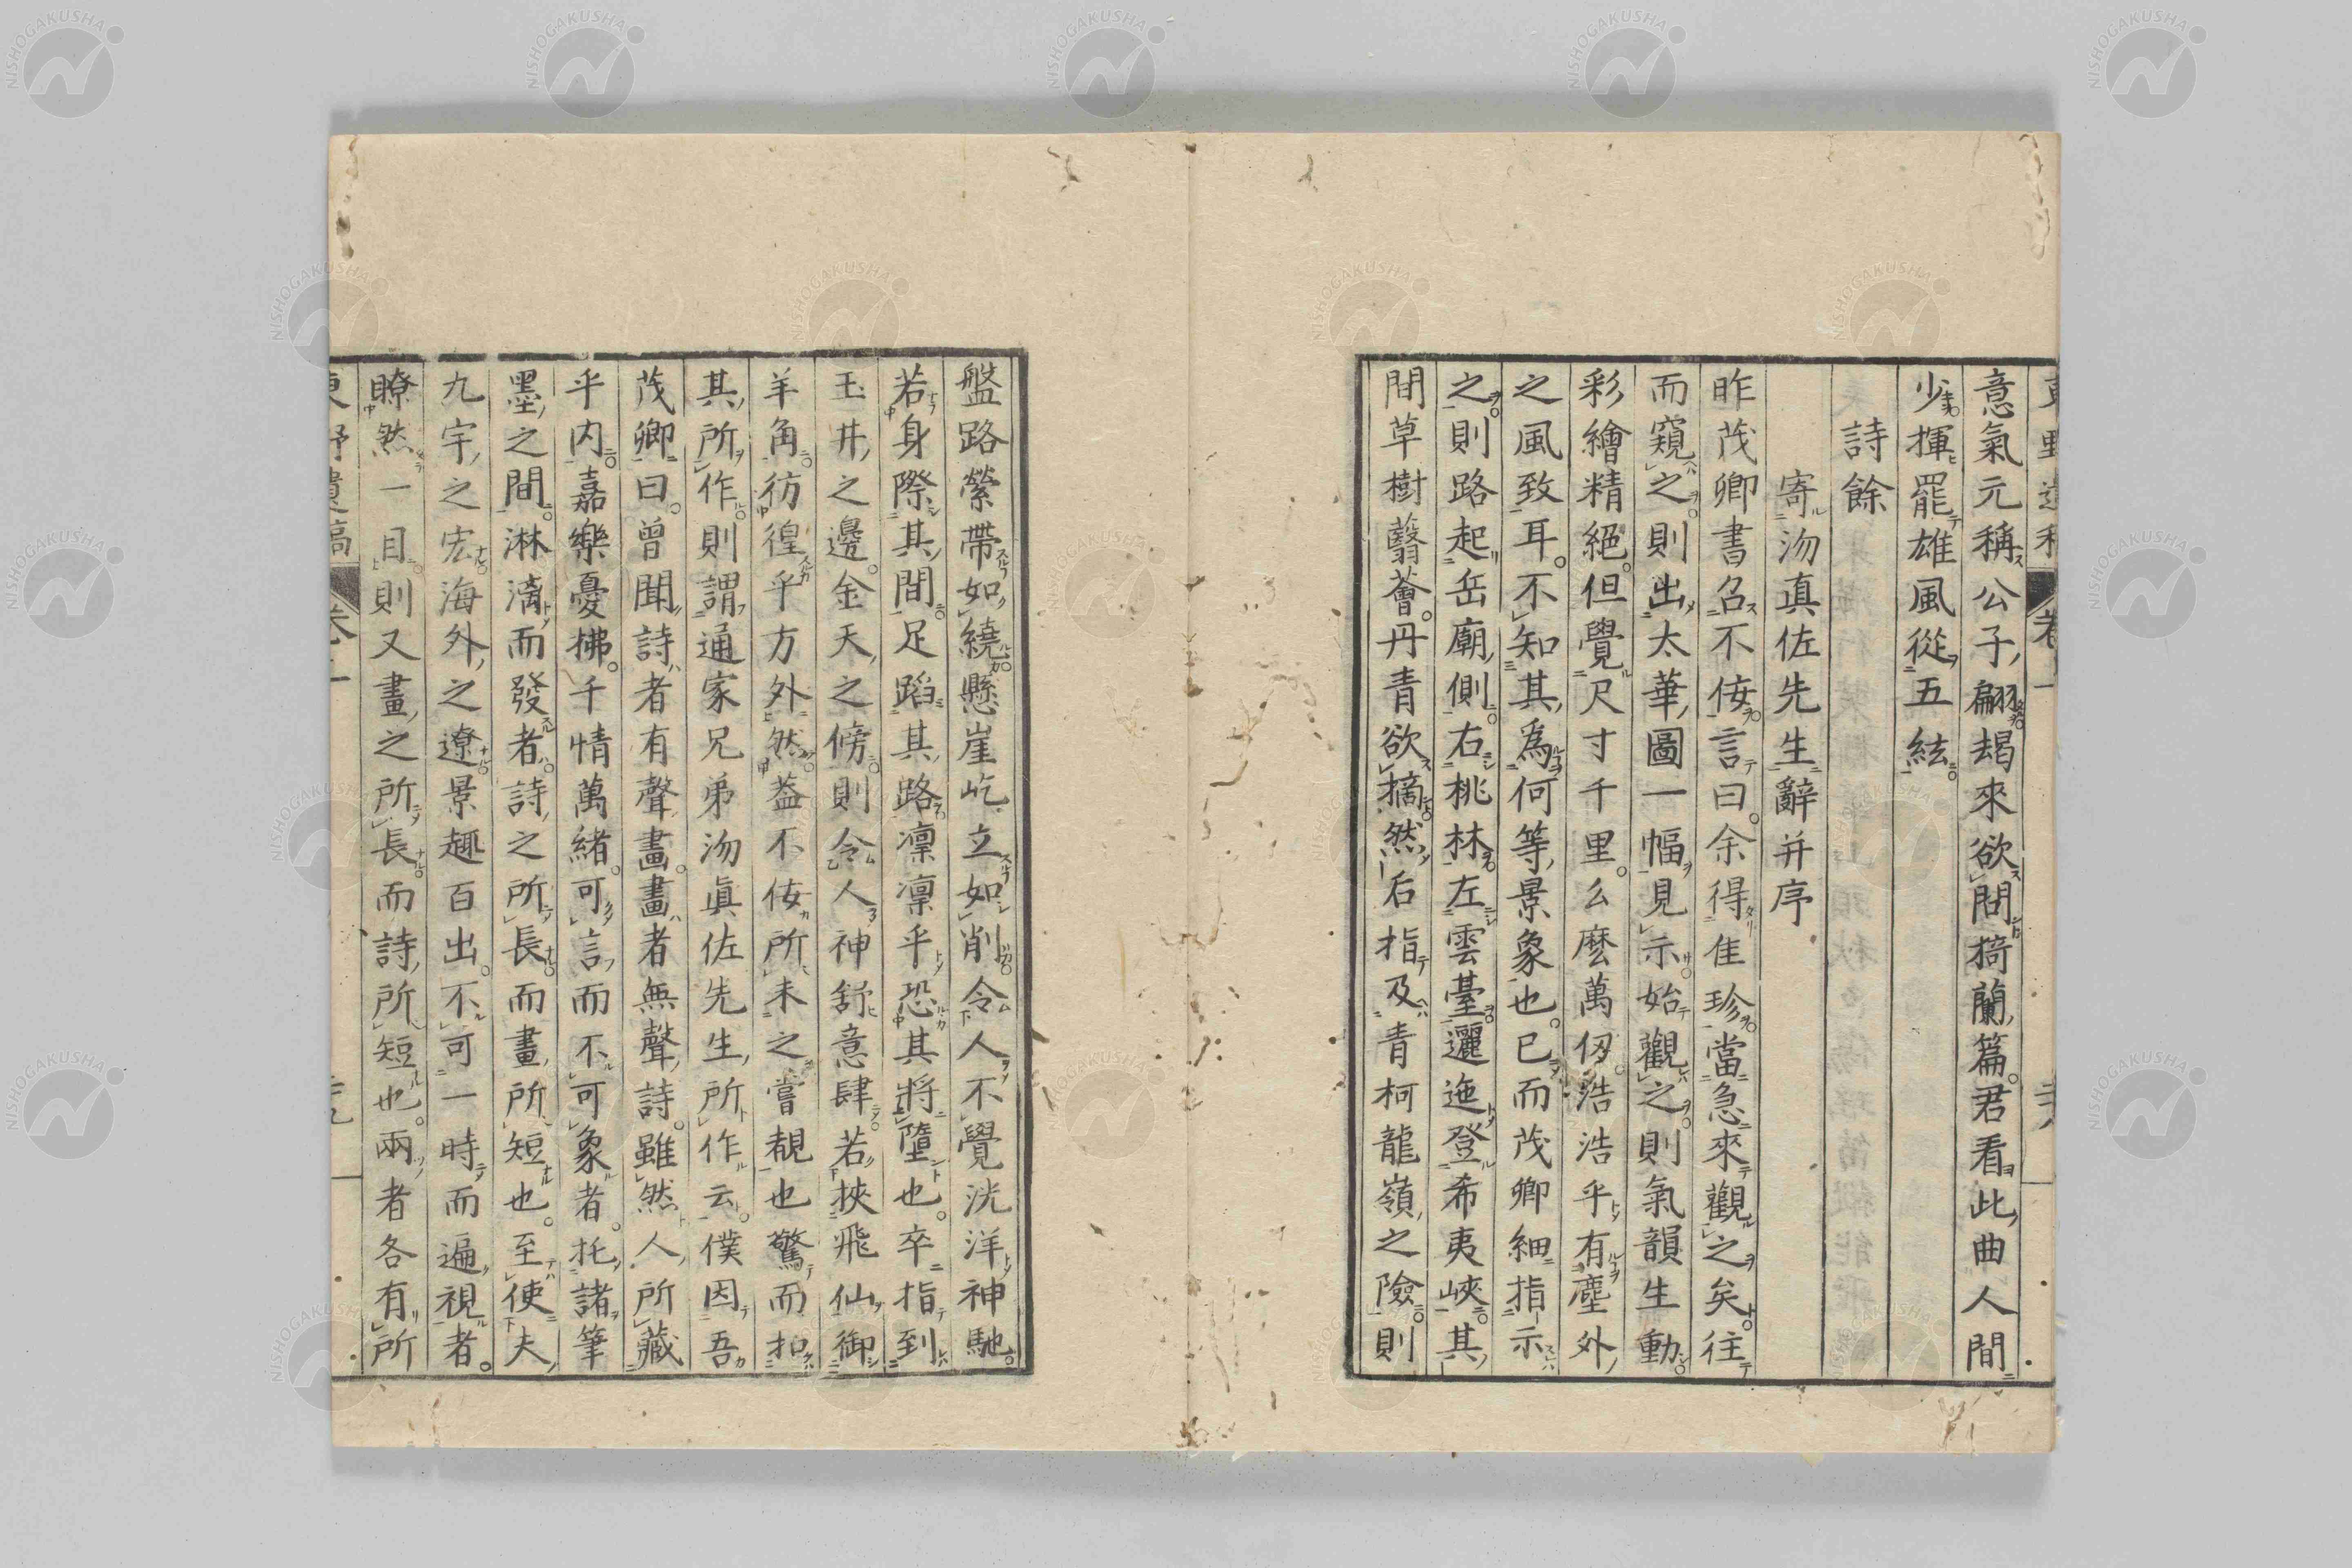 意氣元稱公子翩朅來欲問猗蘭篇君看此曲人間
少揮罷雄風從五絃
詩餘
寄沕真佐先生辭并序
昨茂卿書召不佞言曰余得隹珍當急來觀之矣往
而窺之則出太華圖一幅見示始觀之則氣韻生動
彩繪精絕但覺尺寸千里么麼萬仭浩浩乎有塵外
之風致耳不知其為何等景象也已而茂卿細指示
之則路起岳廟側右桃林左雲臺邐迤登希夷峽其
間草樹蘙薈丹青欲摘然后指及青柯龍嶺之險則
盤路縈帶如繞懸崖屹立如削令人不覺洸洋神馳
若身際其間足蹈其路凛凛乎恐其將墮也卒指到
玉井之邊金天之傍則令人神舒意肆若挾飛仙御
羊角彷徨乎方外然葢不佞所未之嘗覩也驚而扣
其所作則謂通家兄弟沕眞佐先生所作云僕因吾
茂卿曰曾聞詩者有聲畫畫者無聲詩雖然人所藏
乎内嘉樂憂拂千情萬緒可言而不可象者托諸筆
墨之間淋漓而發者詩之所長而畫所短也至使夫
九宇之宏海外之遼景趣百出不可一時而遍視者
瞭然一目則又畫之所長而詩所短也兩者各有所